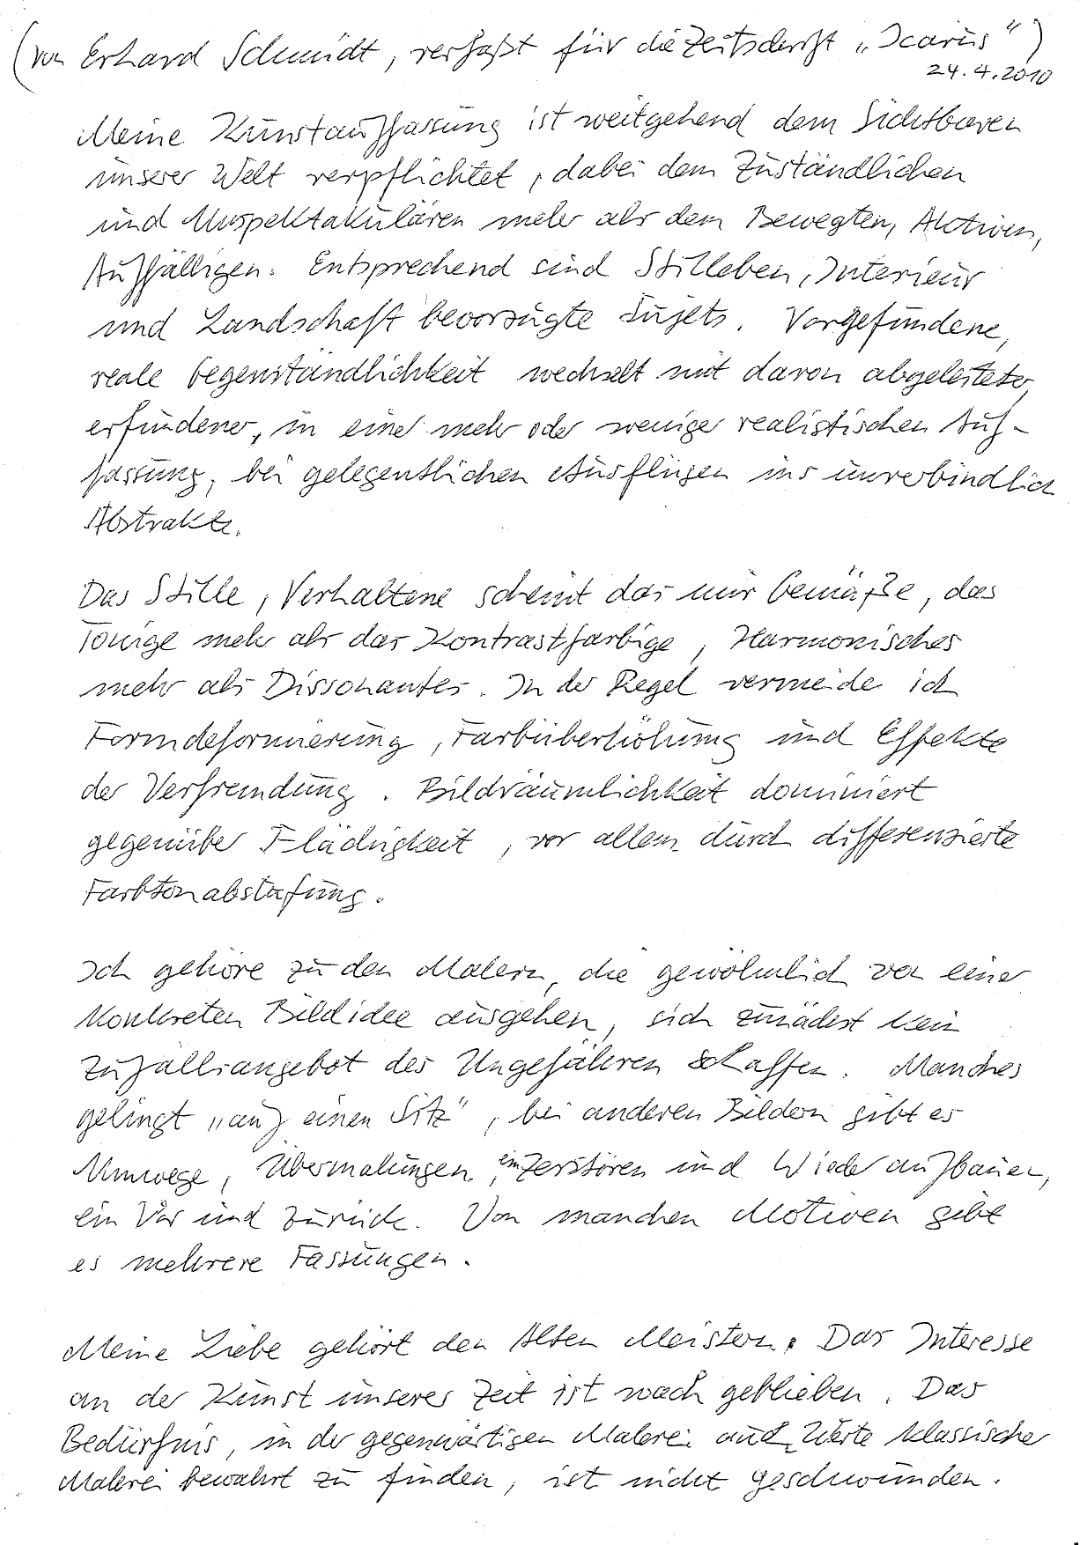 (von Erhard Schmidt, verfaßt für die Zeitschrift „Icarus")
24.4.2010
Meine Kunstauffassung ist weitgehend dem Sichtbaren
unserer Welt verpflichtet, dabei dem Zuständlichen
und Unspektakulären mehr als dem Bewegten, Aktiven,
Auffälligen. Entsprechend sind Stilleben, Interieur
und Landschaft bevorzugte Sujets. Vorgefundene,
reale Gegenständlichkeit wechselt mit davon abgeleiteter,
erfundener, in einer mehr oder weniger realistischen Auf-
fassung, bei gelegentlichen Ausflügen ins unverbindlich
Abstrakte.
Das Stille, Verhaltene scheint das mir Gemäße, das
Tonige mehr als das Kontrastfarbige, Harmonisches
mehr als Dissonantes. In der Regel vermeide ich
Formdeformierung, Farbüberhöhung und Effekte
der Verfremdung. Bildräumlichkeit dominiert
gegenüber Flächigkeit, vor allem durch differenzierte
Farbtonabstufung.
Ich gehöre zu den Malern, die gewöhnlich von einer
konkreten Bildidee ausgehen, sich zunächst kein
Zufallsangebot des Ungefähren schaffen. Manches
gelingt „auf einen Sitz", bei anderen Bildern gibt es
Umwege, Übermalungen, ein Zerstören und Wiederaufbauen,
ein Vor und Zurück. Von manchen Motiven gibt
es mehrere Fassungen.
Meine Liebe gehört den Alten Meistern. Das Interesse
an der Kunst unserer Zeit ist wach geblieben. Das
Bedürfnis, in der gegenwärtigen Malerei auch Werte klassischer
Malerei bewahrt zu finden, ist nicht geschwunden.